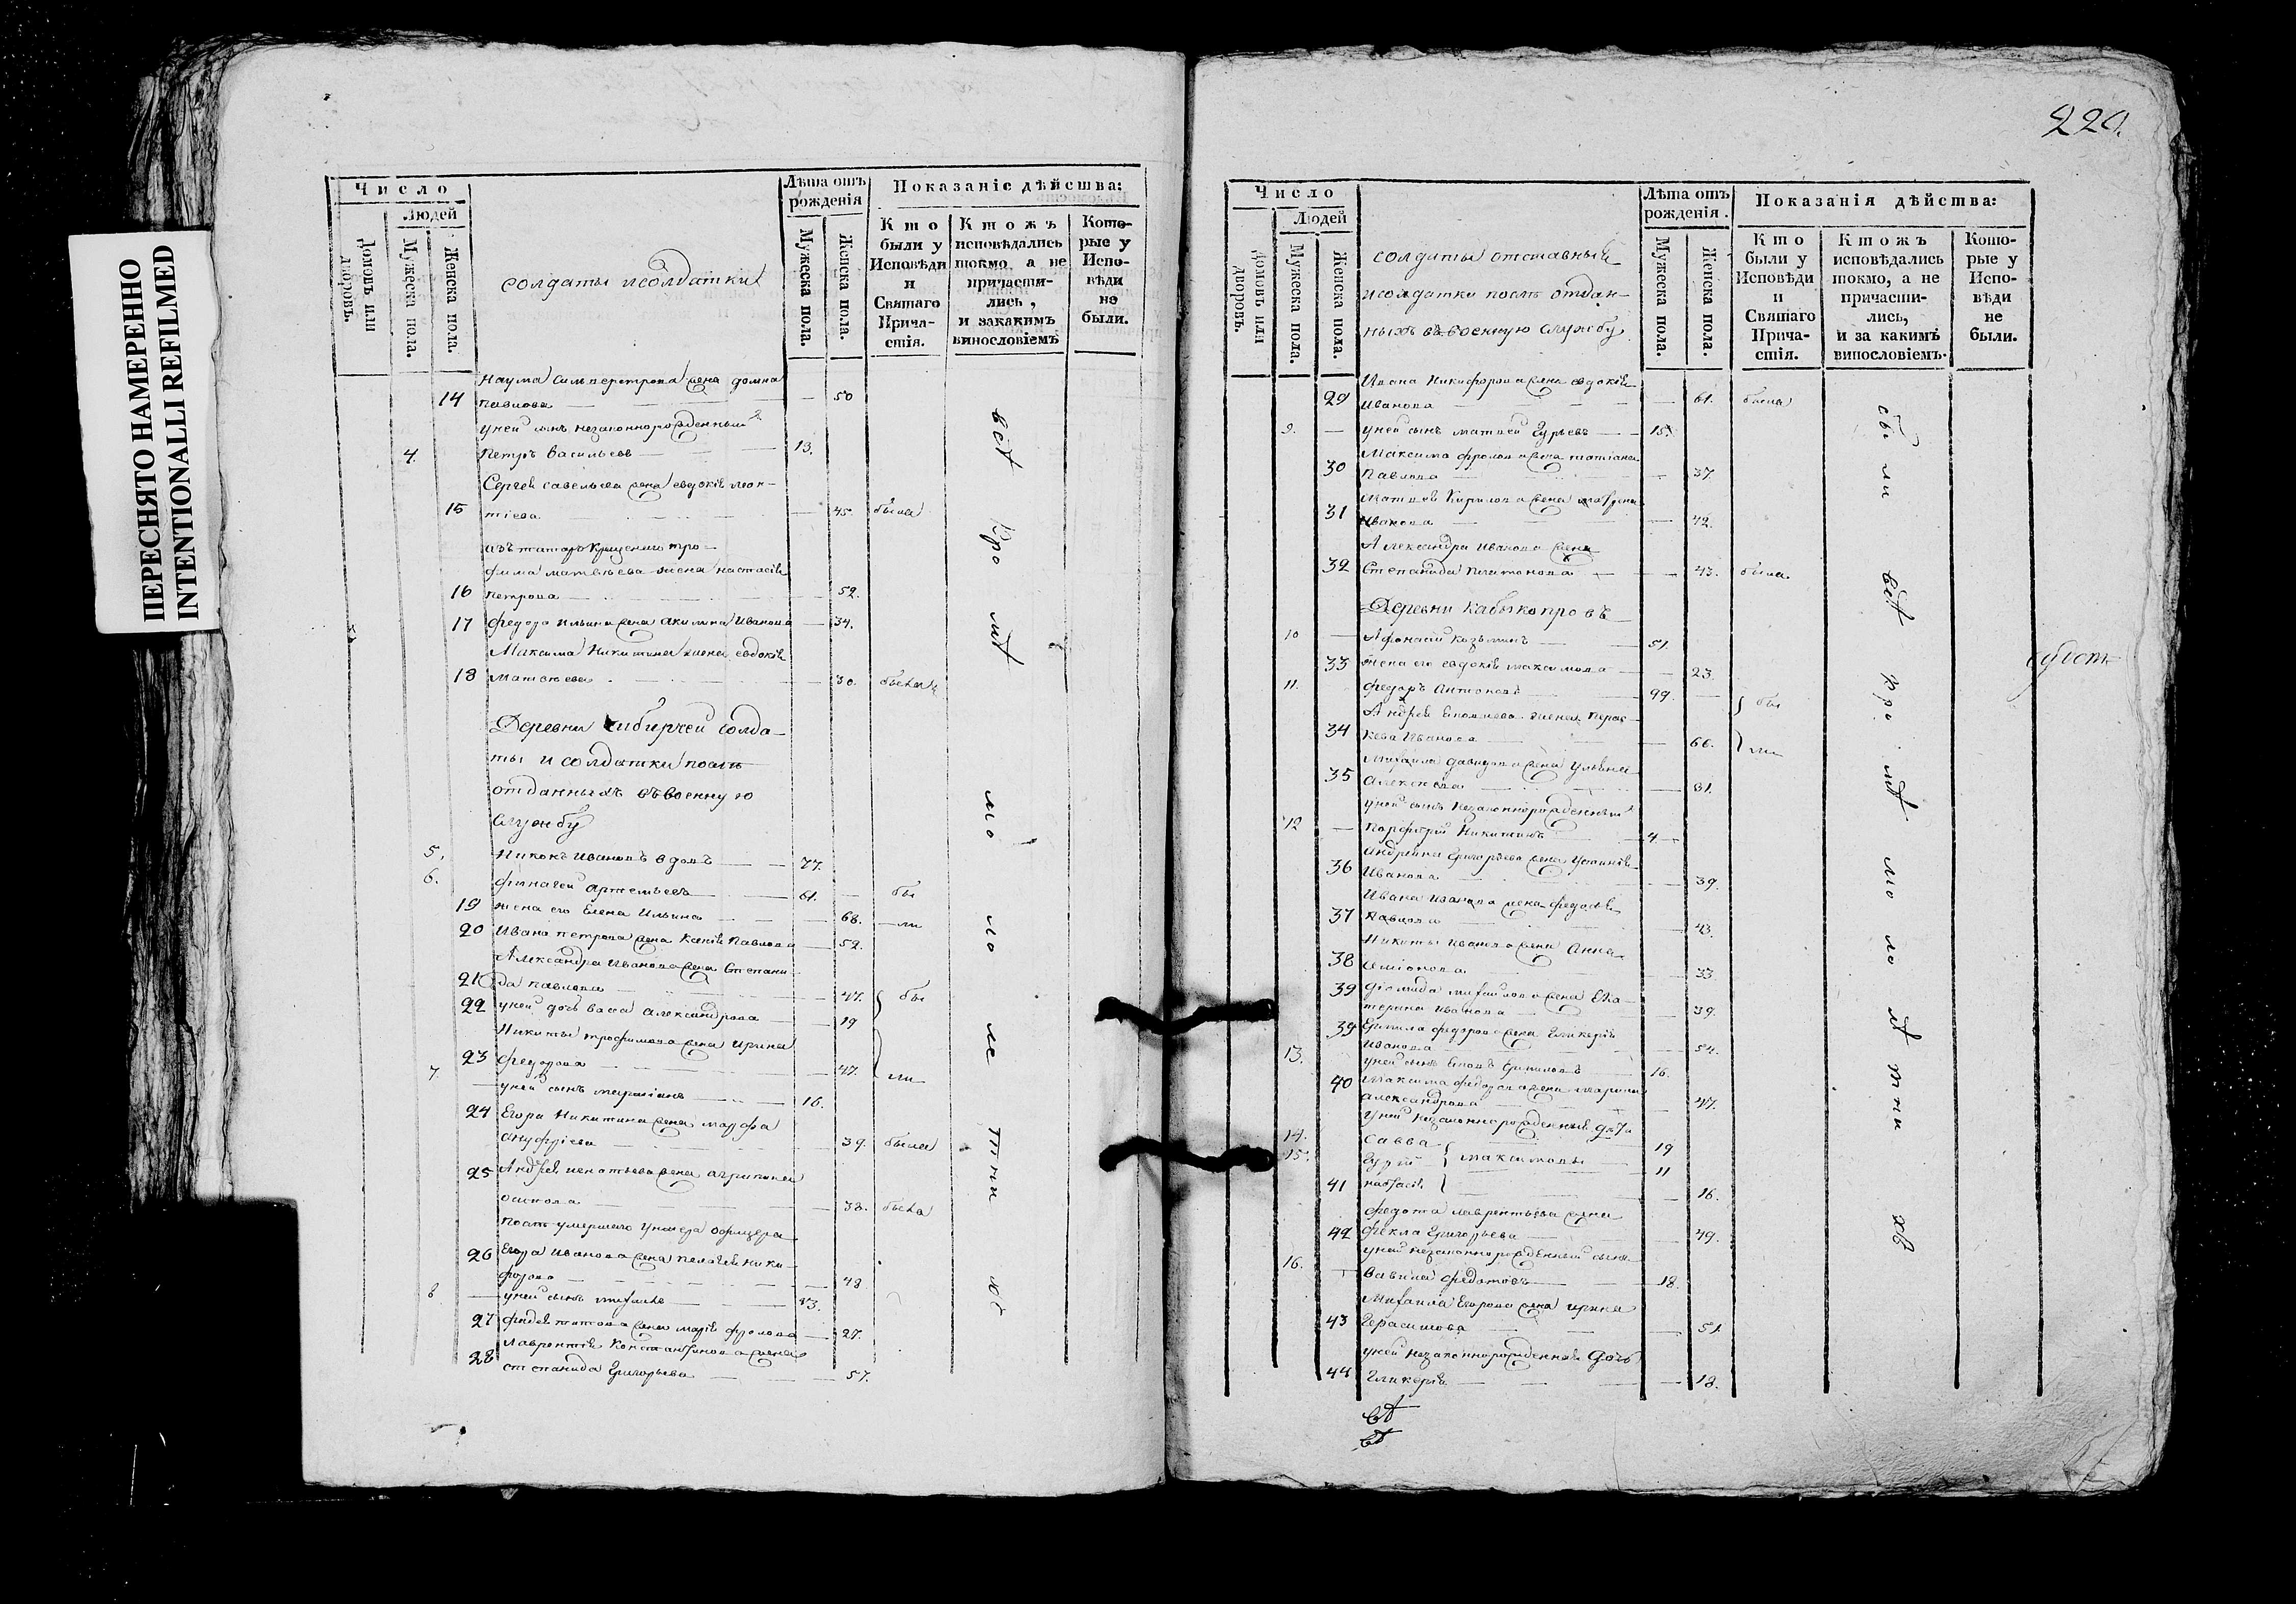 ПЕРЕСНЯТО НАМЕРЕННО
INTENTIONALLI REFILMED
Число
Людей
Домовъ или дворовъ.
Мужеска пола.
Женска пола.
солдаты и солдатки
Лѣта отъ рожденія
Мужеска пола.
Женска пола.
Показаніе дѣйства:
Кто были у Исповѣди и Святаго Прича-стія.
Ктожъ исповѣдались токмо, а не причасти-лись, и закакимъ винословіемъ
Кото-рые у Испо-вѣди не были.
Наума Сильверстрова жена домна
14 Павлова — 50
уней сынъ незаконнорожденный
4. Петръ Васильевъ — 13.
Сергея Савельева жена евдокія леон-
15 тіева — 45 была
изъ татаръ Крещенныхъ тро-
фима матвѣева жена настасія
16 Петрова — 52.
17 Федора Ильина жена Акилина Иванова — 34.
Максима Никитина жена евдокія
18 Матвѣева — 30. была
Деревни
солда-
ты и солдатки послѣ
отданныхъ въ военную
службу
5. Никонъ Ивановъ вдовъ — 77.
6. Артемьевъ — 61. — бы
19 жена его Елена Ильина — 68. — ли
20 Ивана петрова жена Ксенія Павлова — 52.
Александра Иванова жена Степани-
21 да Павлова — 47. бы
22 уней дочь васса Александрова — 19
Никиты трофимова жена Ирина
23 Федорова — 47. ли
7. уней сынъ — 16.
24 Егора Никитина жена марфа
онуфріева — 39. была
25 Андрея игнатьева жена агрипина
осипова — 38. была
Послѣ умершаго Унтера Офицера
26 Егора Иванова жена Пелагея ники-
форова — 48
8 уней сынъ — 13.
27 титова жена марія фролова — 27.
Лаврентія Константинова жена
28 степанида Григорьева — 57.
всѣ кро мѣ мо ло лѣ тни хъ
220.
Число
Людей
Домовъ или дворовъ.
Мужеска пола.
Женска пола.
солдаты отставныя
и солдатки послѣ отдан-
ныхъ въ военную службу
Лѣта отъ рожденія.
Мужеска пола.
Женска пола.
Показанія дѣйства:
Кто были у Исповѣди и Святаго Прича-стія.
Ктожъ исповѣдались токмо, а не причасти-лись, и за какимъ винословіемъ.
Кото-рые у Испо-вѣди не были.
Ивана Никифорова жена евдокія
29 Иванова — 61. была
9. — уней сынъ матвей Гурьевъ — 15.
Максима фролова жена татіана
30 Павлова — 37.
Матвея Кирилова жена матрена
31 Иванова — 42.
Александра Иванова жена
32 Степанида Платонова — 43. была
Деревни
10 — Афонасій Козьминъ — 51.
33 жена его евдокія максимова — 23.
11. Федоръ Антоновъ — 99. — бы
Андрея жена Парас-
34 кева Иванова — 66. ли
Михаила давидова жена Ульяна
35 Алексѣева — 31.
уней сынъ незаконнорожденный
12 — Парфирій Никитинъ — 4.
Андрѣяна Григорьева жена Устинія
36 Иванова — 39.
Ивана Иванова жена федосья
37 Павлова — 43.
Никиты Иванова жена Анна
38 Симіонова — 33
39 Діомида михайлова жена Ека-
терина Иванова — 39.
39 Ермила федорова жена Гликерія
Иванова — 54.
13. уней сынъ Ермиловъ — 16.
40 Максима федорова жена Марина
Александрова — 47.
уней незаконнорожденныя дѣти
14. Савва — 19
15. Гурій } максимовы — 11
41 настасія — 16.
Федота лаврентьева жена
42 фекла Григорьева — 49.
уней незаконнорожденный сынъ
16. Вавила федотовъ — 18.
Михаила Егорова жена ирина
43 Герасимова — 51.
уней незаконнорожденная дочь
44 Гликерія — 18.
бы ли всѣ кро мѣ мо ло лѣ тни хъ